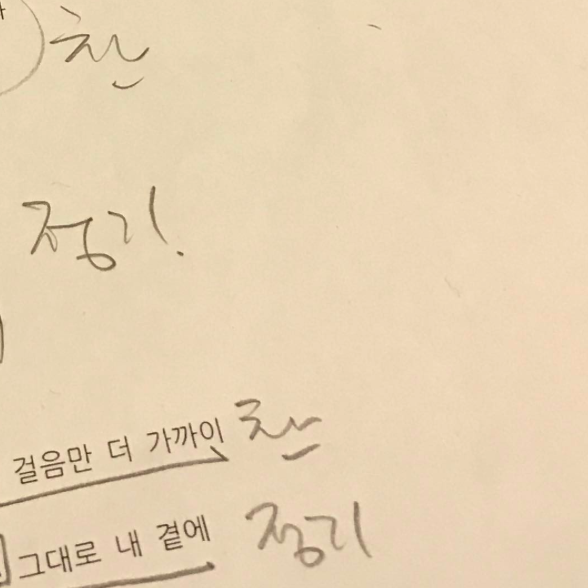 찬
정기.
걸음만 더 가까이 찬
그대로 내 곁에 정기